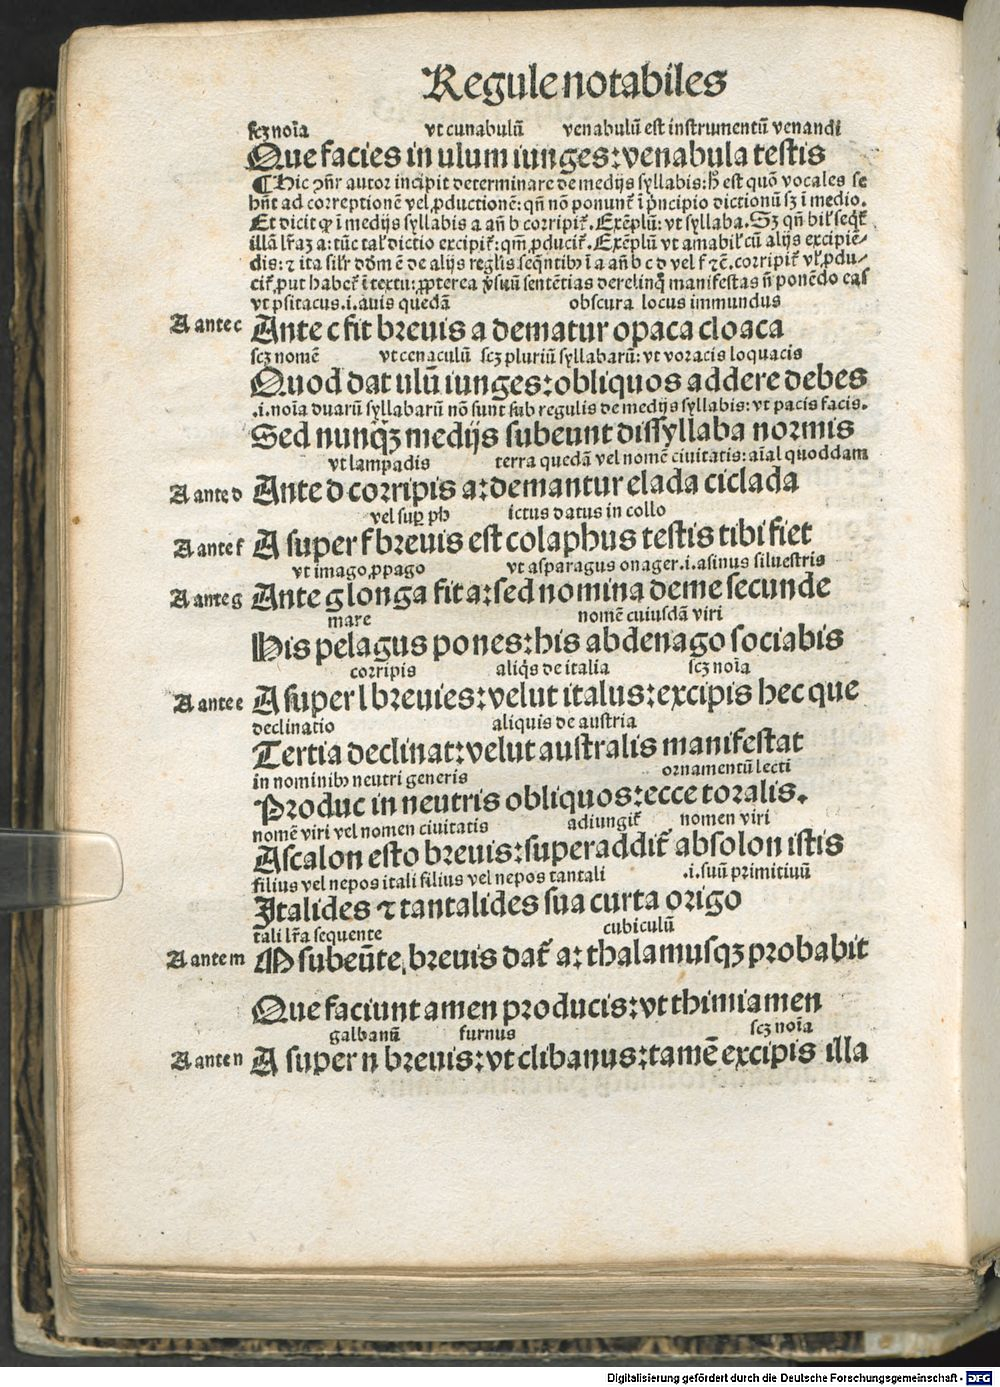 Regule notabiles
scꝫ noīa vt cunabulū venabulū est instrumentū venandi
Que facies in ulum iunges: venabula testis
¶ Hic ↄñr autor incipit determinare de medijs syllabis: hͦ est quō vocales se
hñt ad correptionē vel ꝓductionē: qñ nō ponunt᷑ ī pͥncipio dictionū sꝫ ī medio.
Et dicit ꝙ ī medijs syllabis a añ b corripit᷑. Exēplū: vt syllaba. Sꝫ qñ bil᷑ seqt᷑
illā lr̄aꝫ a: tūc tal᷑ dictio excipit᷑: qm̄ ꝓducit᷑. Exēplū vt amabil᷑ cū alijs excipiē-
dis: ⁊ ita sil᷑r dd̄m ē de alijs reglis seq̄ntibꝫ ī a añ b c d vel f ⁊c̄. corripit᷑ vl᷑ ꝓdu-
cit᷑ ꝓut habet᷑ ī textu: ꝓpterea v̓suū sentētias derelinqͦ manifestas ñ ponēdo eas
vt psitacus .i. auis quedā obscura locus immundus
A ante c Ante c fit breuis a dematur opaca cloaca
scꝫ nomē vt cenaculū scꝫ pluriū syllabarū: vt voracis loquacis
Quod dat ulū iunges: obliquos addere debes
.i. noīa duarū syllabarū nō sunt sub regulis de medijs syllabis: vt pacis facis.
Sed nunqͣꝫ medijs subeunt dissyllaba normis
vt lampadis terra quedā vel nomē ciuitatis: aīal quoddam
A ante d Ante d corripis a: demantur elada ciclada
vel sup̄ ph ictus datus in collo
A ante f A super f breuis est colaphus testis tibi fiet
vt imago, ꝓpago vt asparagus onager .i. asinus siluestris
A ante g Ante g longa fit a: sed nomina deme secunde
mare nomē cuiusdā viri
His pelagus pones: his abdenago sociabis
corripis aliqͥs de italia scꝫ noīa
A ante e A super l breuies: velut italus: excipis hec que
declinatio aliquis de austria
Tertia declinat: velut australis manifestat
in nominibꝫ neutri generis ornamentū lecti
Produc in neutris obliquos: ecce toralis.
nomē viri vel nomen ciuitatis adiungit᷑ nomen viri
Ascalon esto breuis: superaddit᷑ absolon istis
filius vel nepos itali filius vel nepos tantali .i. suū primitiuū
Italides ⁊ tantalides sua curta origo
tali lr̄a sequente cubiculū
A ante m M subeūte, breuis dat᷑ a: thalamusqꝫ probabit
Que faciunt amen producis: vt thimiamen
galbanū furnus scꝫ noīa
A ante n A super n breuis: vt clibanus: tamē excipis illa
Digitalisierung gefördert durch die Deutsche Forschungsgemeinschaft - DFG